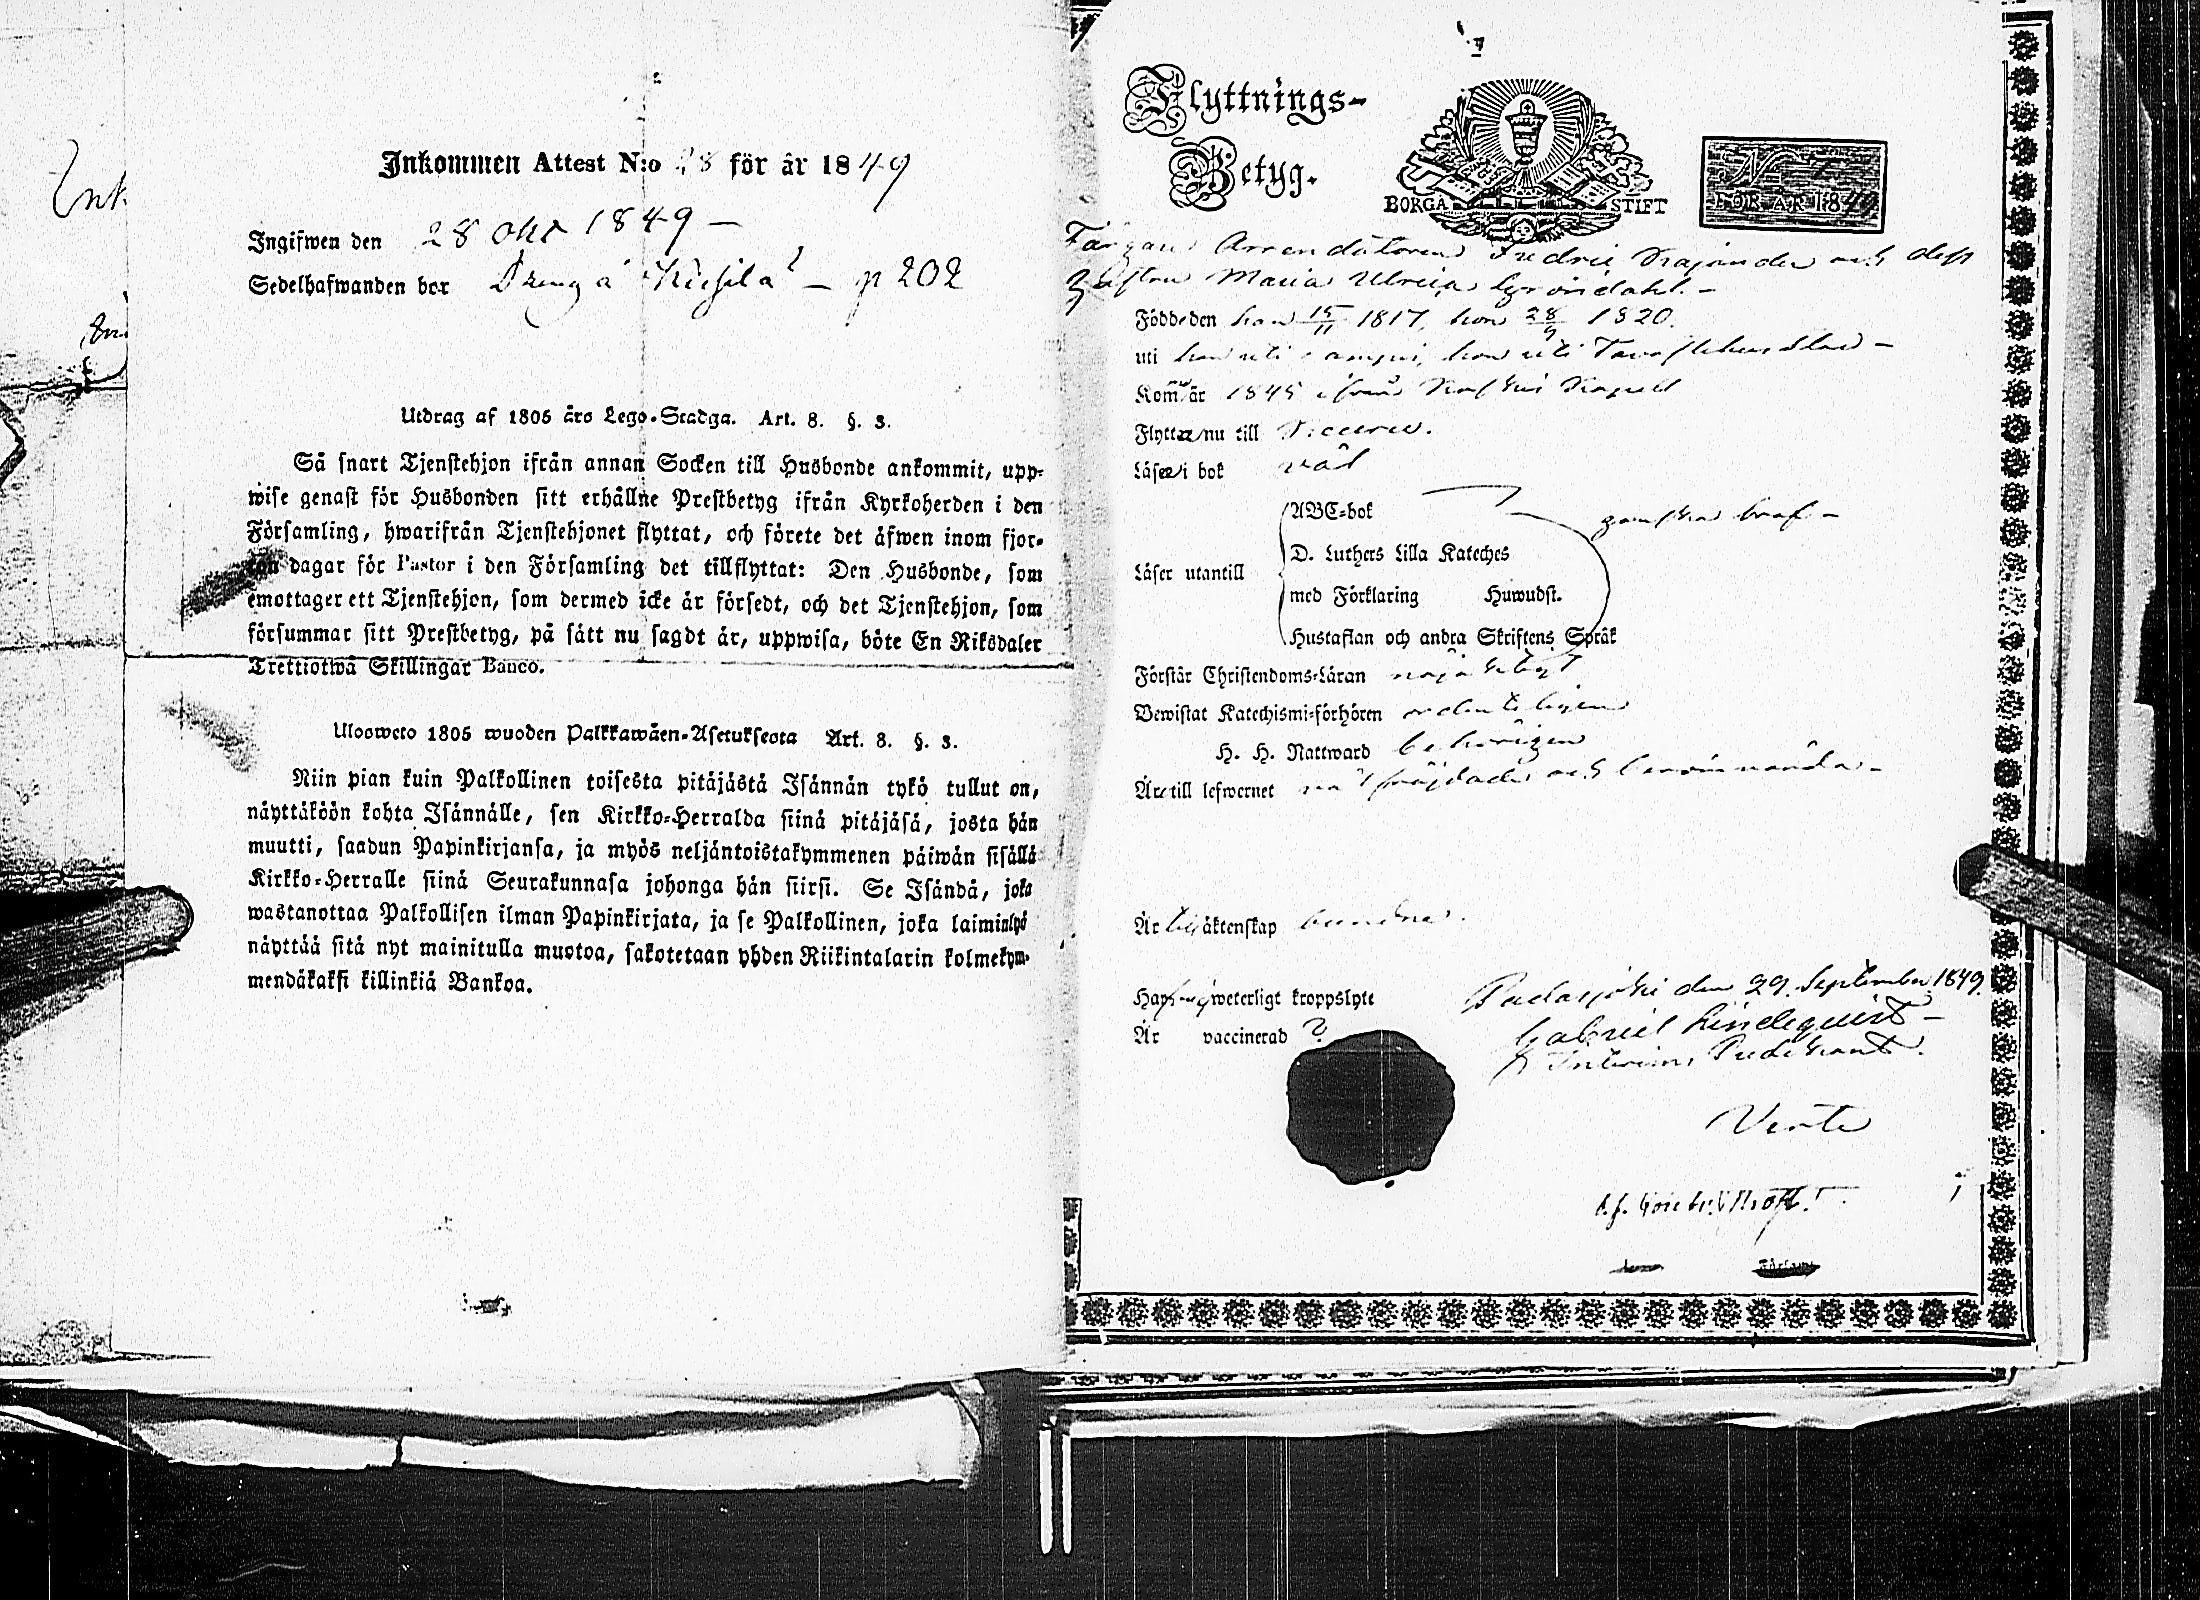 Inkommen Attest N:o 28 för år 1849
Ingifwen den 28 Okt 1849 –
Sedelhafwanden bor – p 202
Utdrag af 1805 års Lego-Stadga. Art. 8. §. 3.
Så snart Tjenstehjon ifrån annan Socken till Husbonde ankommit, upp-
wise genast för Husbonden sitt erhållne Prestbetyg ifrån Kyrkoherden i den
Församling, hwarifrån Tjenstehjonet flyttat, och förete det äfwen inom fjor-
ton dagar för Pastor i den Församling det tillflyttat: Den Husbonde, som
emottager ett Tjenstehjon, som dermed icke är försedt, och det Tjenstehjon, som
försummar sitt Prestbetyg, på sätt nu sagdt är, uppwisa, böte En Riksdaler
Trettiotwå Skillingar Banco.
Ulosweto 1805 wuoden Palkkawäen-Asetuksesta Art. 8. §. 3.
Niin pian kuin Palkollinen toisesta pitäjästä Isännän tykö tullut on,
näyttäköön kohta Isännälle, sen Kirkko-Herralda siinä pitäjäsä, josta hän
muutti, saadun Papinkirjansa, ja myös neljäntoistakymmenen päiwän sisällä
Kirkko-Herralle siinä Seurakunnasa johonga hän siirsi. Se Isändä, joka
wastanottaa Palkollisen ilman Papinkirjata, ja se Palkollinen, joka laiminlyö
näyttää sitä nyt mainitulla muotoa, sakotetaan yhden Riikintalarin kolmekym-
mendäkaksi killinkiä Bankoa.
Flyttnings-
Betyg.
BORGÅ STIFT
FÖR ÅR 1849
Arrendatoren Fredric Kajander och dess
Hustru Maria Ulrica Gröndahl. –
Födde den han 15/11 1817, hon 28/9 1820.
uti han uti hon uti Tavastehus Stad –
Kom år 1845 ifrån Kapell
Flytta nu till
Läser i bok väl
Läser utantill
ABC-bok
D. Luthers Lilla Kateches
med Förklaring Huwudst.
Hustaflan och andra Skriftens Språk
ganska braf –
Förstår Christendoms-Läran nöjaktigt
Bewistat Katechismi-förhören ordenteligen
H. H. Nattward behörigen
Är till lefwernet väl frejdade och berömvärda –
Är till äktenskap bundne.
Haf weterligt kroppslyte
Är vaccinerad ?
Padasjoki den 29. September 1849.
Gabriel Lindeqvist –
Interims Predikant.
Verte